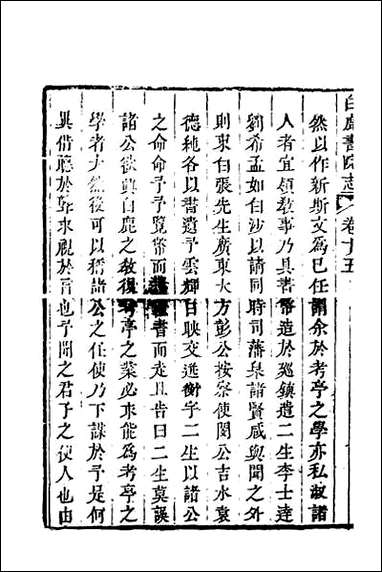 白鹿書院志 卷十五
然以作新斯文為己任謂余於考亭之學亦私淑諸
人者宜領教事乃具書幣造於廷鎮遣二生李士達
劉希孟如白沙以請同時司藩臬諸賢咸與聞之外
則東白張先生廣東大方彭公按察使閔公吉水袁
德純各以書遺予雲輝日映交進衡宇二生以諸公
之命命予予覽幣而 書而走且告曰二生莫誤
諸公欲興白鹿之教復考亭之業必求能為考亭之
學者夫然後可以稱諸公之任使乃下謀於予是何
異借聽於聾求視於盲也予聞之君子之使人也由